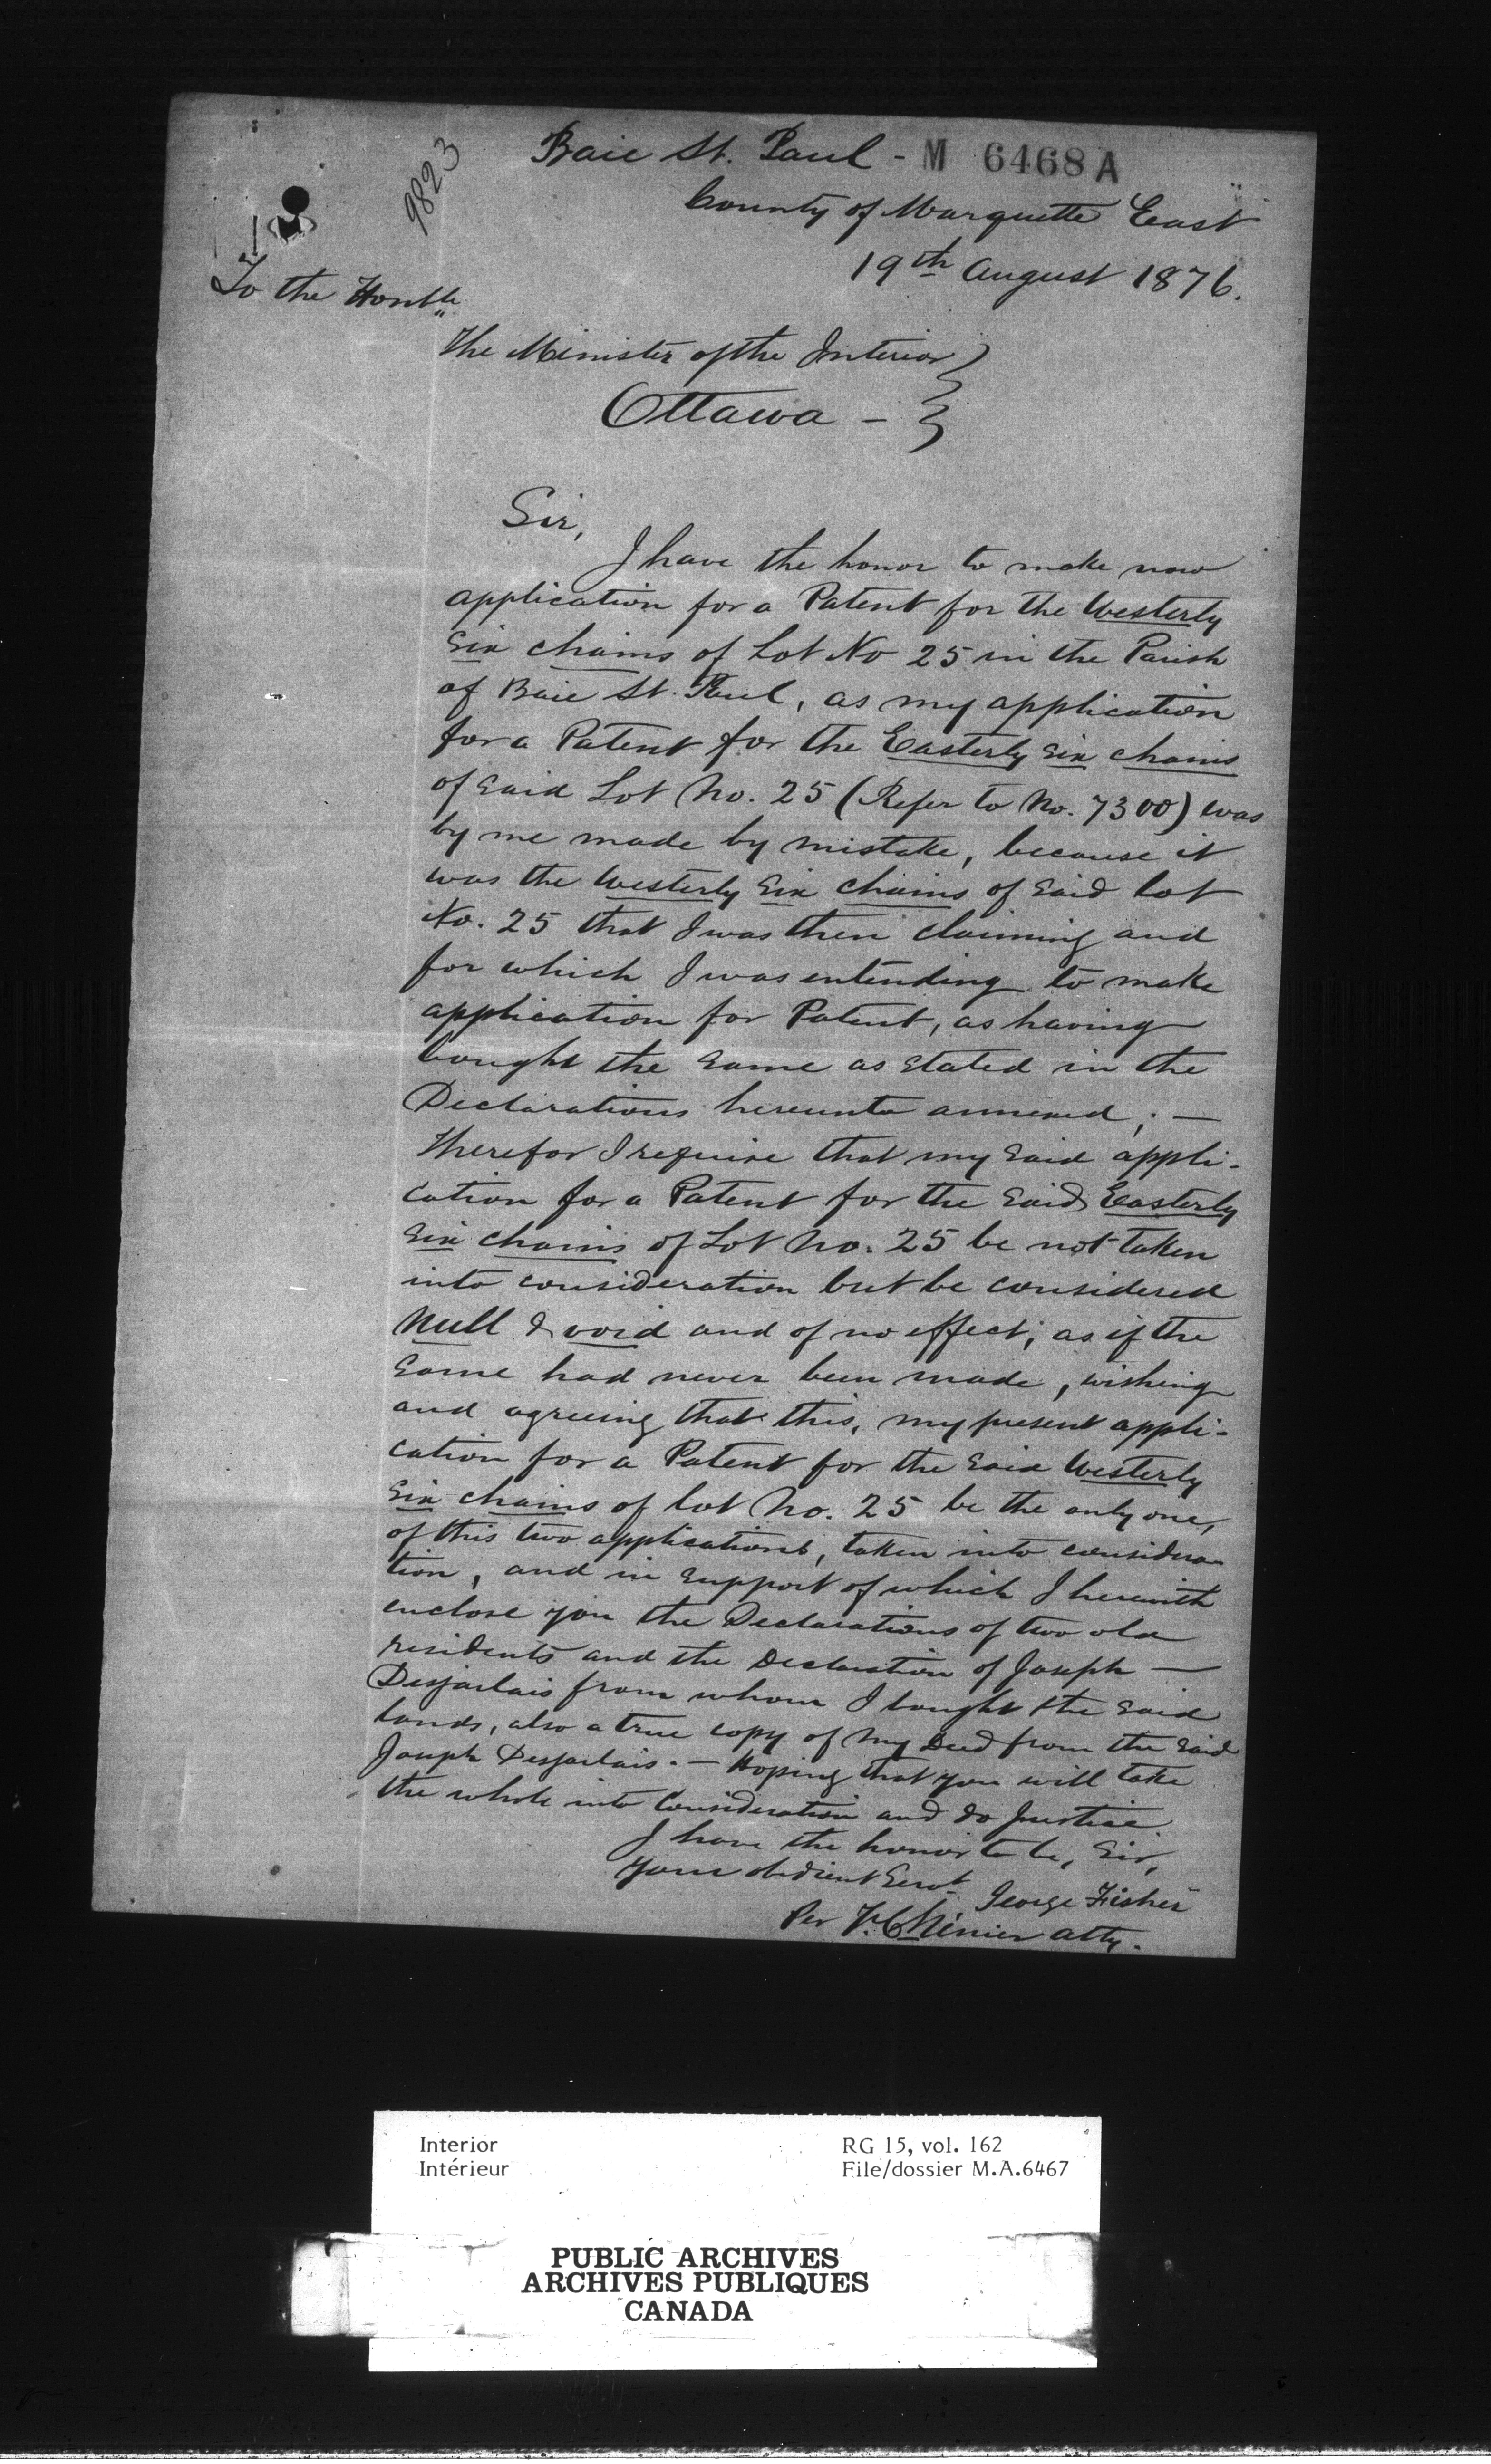 Baie St. Paul - M 6468 A
9823
County of Marquette East
19th August 1876.
To the Honble
The Minister of the Interior
Ottawa -
Sir,
I have the honor to make now
application for a Patent for the Westerly
Six chains of Lot No 25 in the Parish
of Baie St. Paul, as my application
for a Patent for the Easterly six chains
of said Lot No. 25 (Refer to No. 7300) was
by me made by mistake, because it
was the Westerly Six chains of said lot
No. 25 that I was then claiming and
for which I was entending to make
application for Patent, as having
bought the same as stated in the
Declarations hereunto annexed; -
Therefor I require that my said appli-
cation for a Patent for the said Easterly
six chains of Lot No. 25 be not taken
into consideration but be considered
Null & void and of no effect; as if the
same had never been made, wishing
and agreeing that this, my present appli-
cation for a Patent for the said Westerly
six chains of lot No. 25 be the only one,
of this two applications, taken into considera-
tion, and in support of which I herewith
enclose you the Declarations of two old
residents and the Declaration of Joseph -
Desjarlais from whom I bought the said
lands, also a true copy of my Deed from the said
Joseph Desjarlais. - Hoping that you will take
the whole into Consideration and do Justice
I have the honor to be, Sir,
Your obedient Servt
George Fisher
Per atty.
Interior
Intérieur
RG 15, vol. 162
File/dossier M.A.6467
PUBLIC ARCHIVES
ARCHIVES PUBLIQUES
CANADA